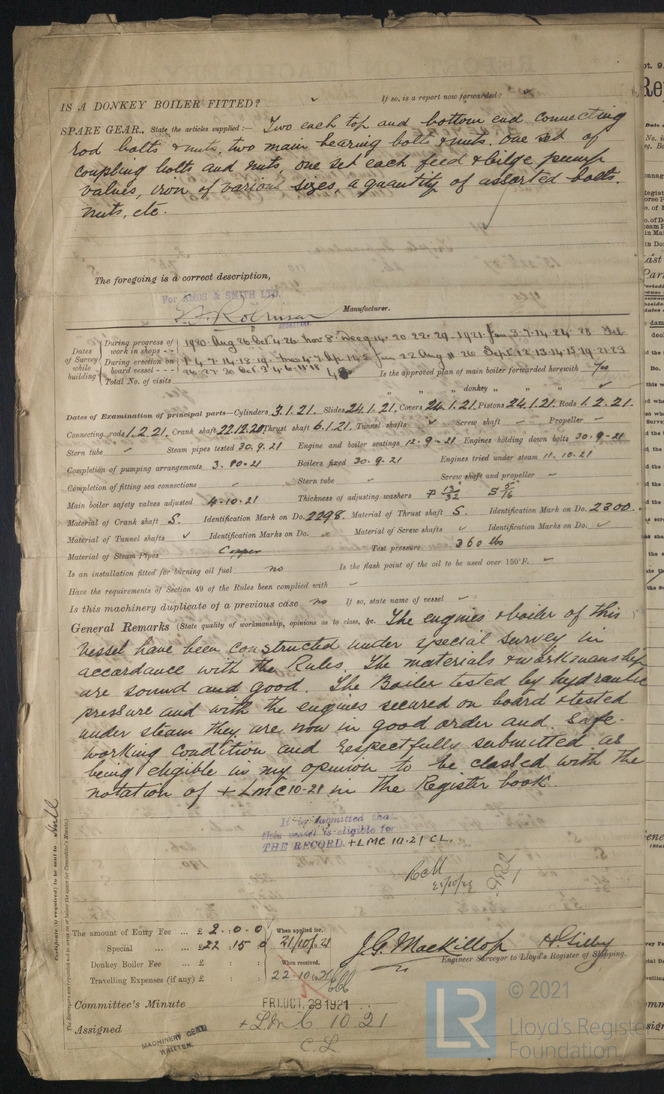 IS A DONKEY BOILER FITTED? If so, is a report now forwarded?
SPARE GEAR. State the articles supplied:— Two each top and bottom end connecting
rod bolts & nuts, two main bearing bolts & nuts, one set of
coupling bolts and nuts, one set each feed & bilge pump
valves, iron of various sizes, a quantity of assorted bolts,
nuts, etc.
The foregoing is a correct description,
For AMOS & SMITH LTD.
Robinson Manufacturer.
Dates of Survey while building
During progress of work in shops
During erection on board vessel
Total No. of visits 48 Is the approved plan of main boiler forwarded herewith Yes
" " " donkey " " "
Dates of Examination of principal parts—Cylinders 3.1.21. Slides 24.1.21. Covers 24.1.21. Pistons 24.1.21. Rods 1.2.21.
Connecting rods 1.2.21. Crank shaft 22.12.20 Thrust shaft 6.1.21. Tunnel shafts Screw shaft Propeller
Stern tube Steam pipes tested 30.9.21 Engine and boiler seatings 12-9-21 Engines holding down bolts 30.9-21
Completion of pumping arrangements 3.10.21 Boilers fixed 30.9.21 Engines tried under steam 11.10.21
Completion of fitting sea connections Stern tube Screw shaft and propeller
Main boiler safety valves adjusted 4.10.21 Thickness of adjusting washers P 13/32 S 5/16
Material of Crank shaft S. Identification Mark on Do. 2298. Material of Thrust shaft S. Identification Mark on Do. 2300.
Material of Tunnel shafts Identification Marks on Do. Material of Screw shafts Identification Marks on Do.
Material of Steam Pipes Copper Test pressure 360 lbs
Is an installation fitted for burning oil fuel no Is the flash point of the oil to be used over 150°F.
Have the requirements of Section 49 of the Rules been complied with
Is this machinery duplicate of a previous case no If so, state name of vessel
General Remarks (State quality of workmanship, opinions as to class, &c. The engines & boiler of this
vessel have been constructed under special survey in
accordance with the Rules. The materials & workmanship
are sound and good. The Boiler tested by hydraulic
pressure and with the engines secured on board & tested
under steam they are now in good order and safe
working condition and respectfully submitted as
being eligible in my opinion to be classed with the
notation of + LMC 10-21 in the Register book.
It is submitted that
this vessel is eligible for
THE RECORD. + LMC 10.21 CL.
The amount of Entry Fee ... £ 2 . 0 . 0 When applied for,
Special ... £22 . 15 . 0 21/10/21
Donkey Boiler Fee ... £ : : When received,
Travelling Expenses (if any) £ : : 22.10.21
J.G. Mackillop
Engineer Surveyor to Lloyd's Register of Shipping.
Committee's Minute FRI. OCT. 28 1921
Assigned + LMC 10.21
C.L
MACHINERY CERT. WRITTEN.
Certificate (if required) to be sent to Hull
© 2021
LR Lloyd's Register
Foundation